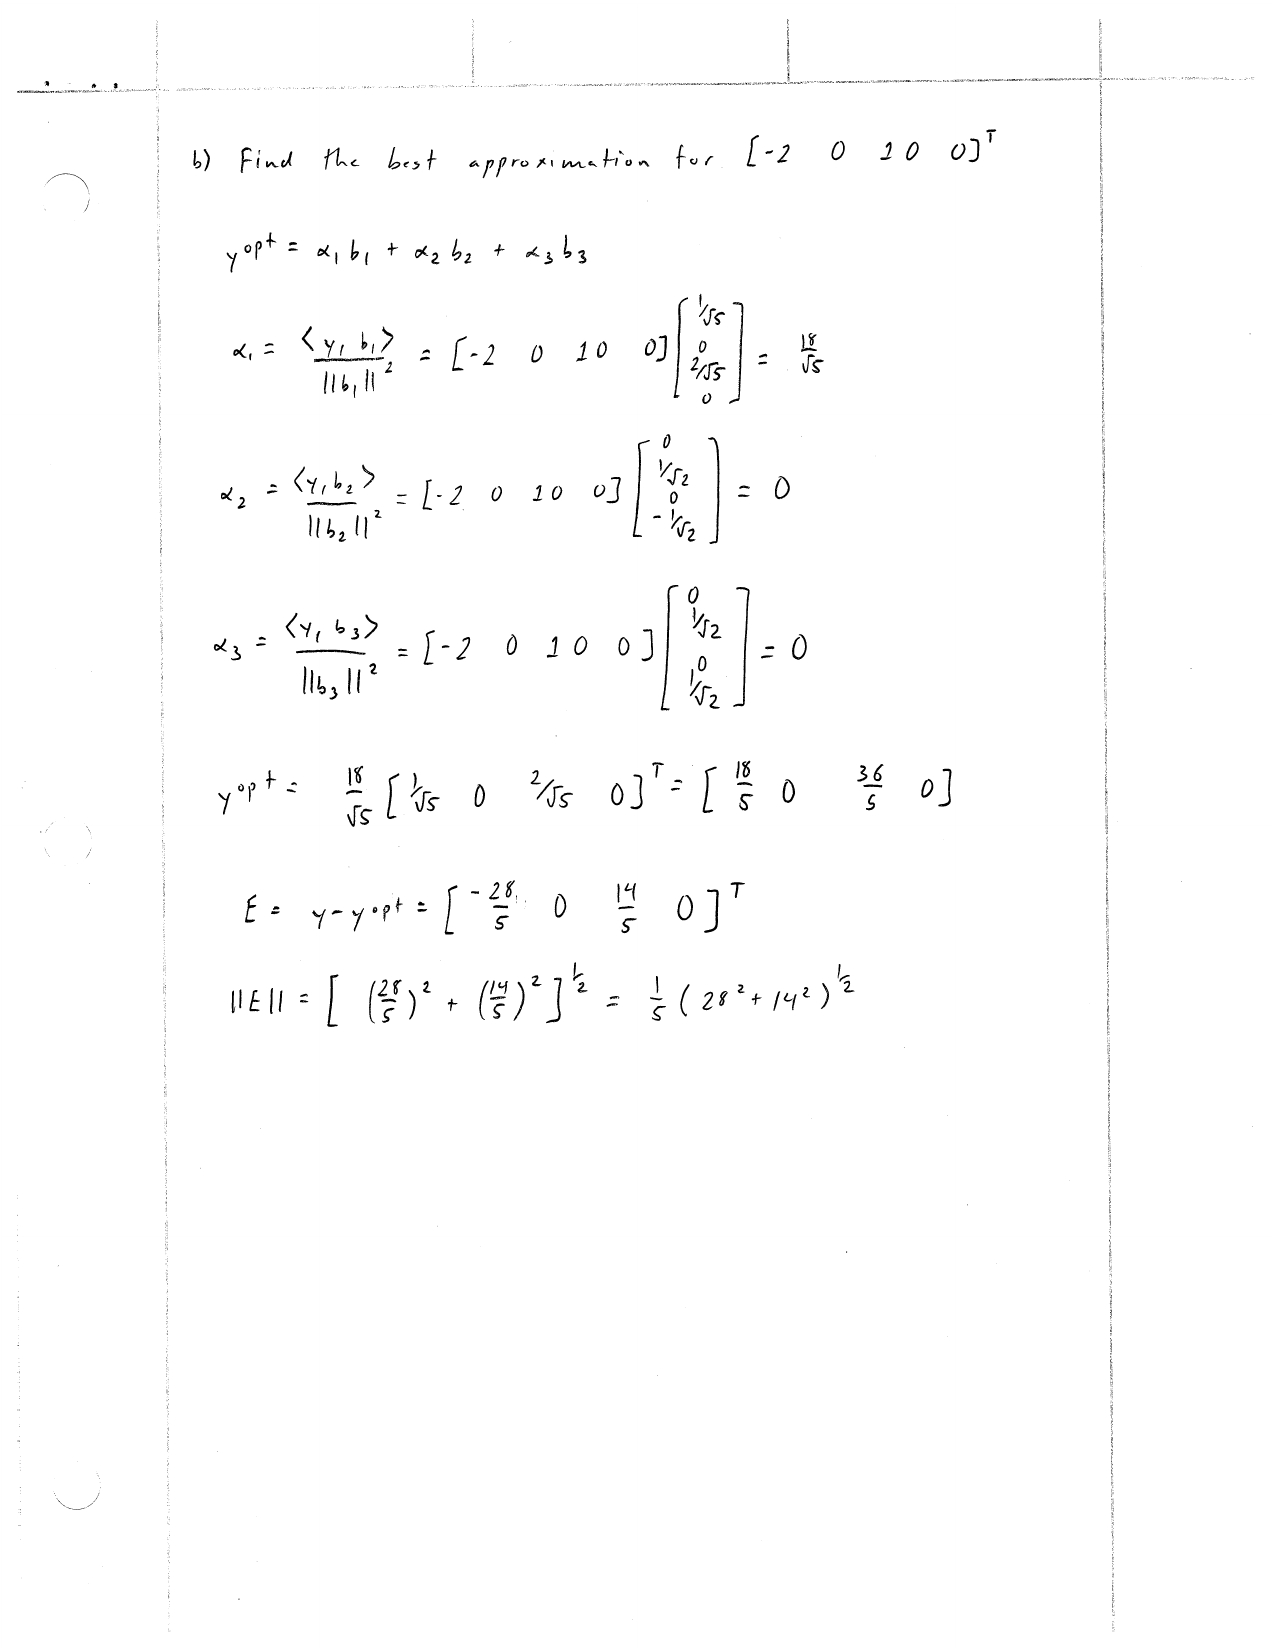 b) Find the best approximation for [-2 0 10 0]^T
y^opt = α₁b₁ + α₂b₂ + α₃b₃
α₁ = <y, b₁> / ||b₁||² = [-2 0 10 0] [1/√5 0 2/√5 0] = 18/√5
α₂ = <y, b₂> / ||b₂||² = [-2 0 10 0] [0 1/√2 0 -1/√2] = 0
α₃ = <y, b₃> / ||b₃||² = [-2 0 10 0] [0 1/√2 0 1/√2] = 0
y^opt = 18/√5 [1/√5 0 2/√5 0]^T = [18/5 0 36/5 0]
E = y - y^opt = [-28/5 0 14/5 0]^T
||E|| = [(28/5)² + (14/5)²]^1/2 = 1/5 (28² + 14²)^1/2